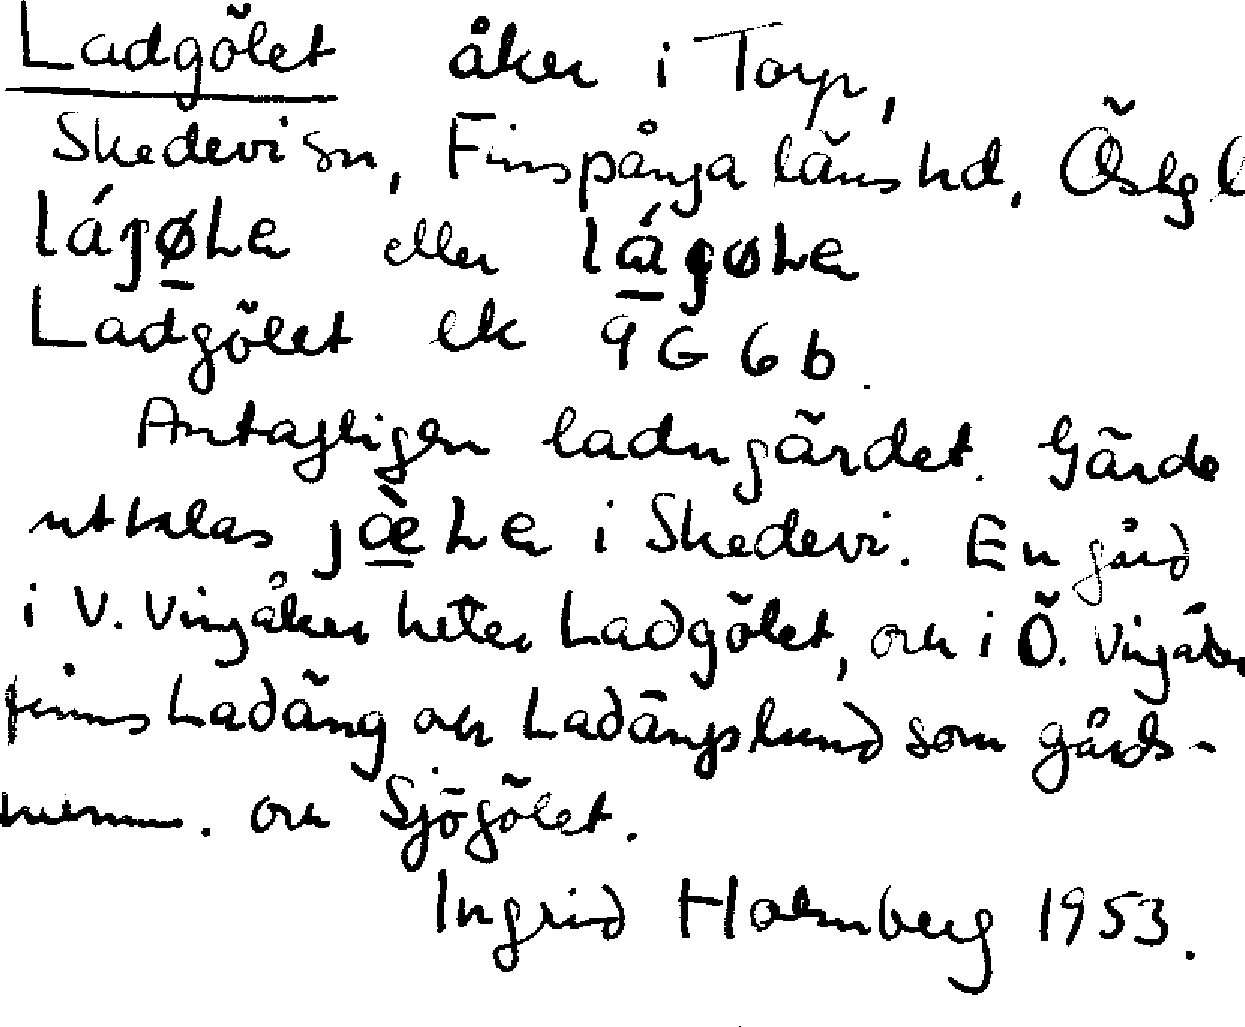 Ladgölet åker i Torp,
Skedevi sn, Finspånga läns hd, Östg l
lájøLe eller lágøLe
Ladgölet ek 9G 6b.
Antagligen ladugärdet. Gärde
uttalas jæ̀Le i Skedevi. En gård
i V. Vingåker heter Ladgölet, och i Ö. Vingåker
finns Ladäng och Ladängslund som gårds-
namn. och Sjögölet.
Ingrid Holmberg 1953.